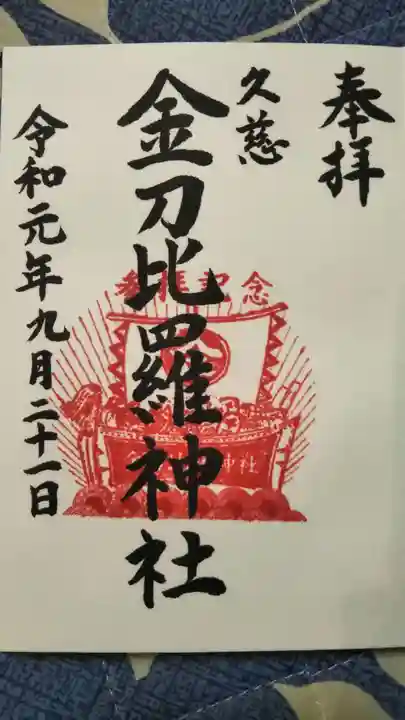 奉拝
久慈
金刀比羅神社
参拝記念
令和元年九月二十一日